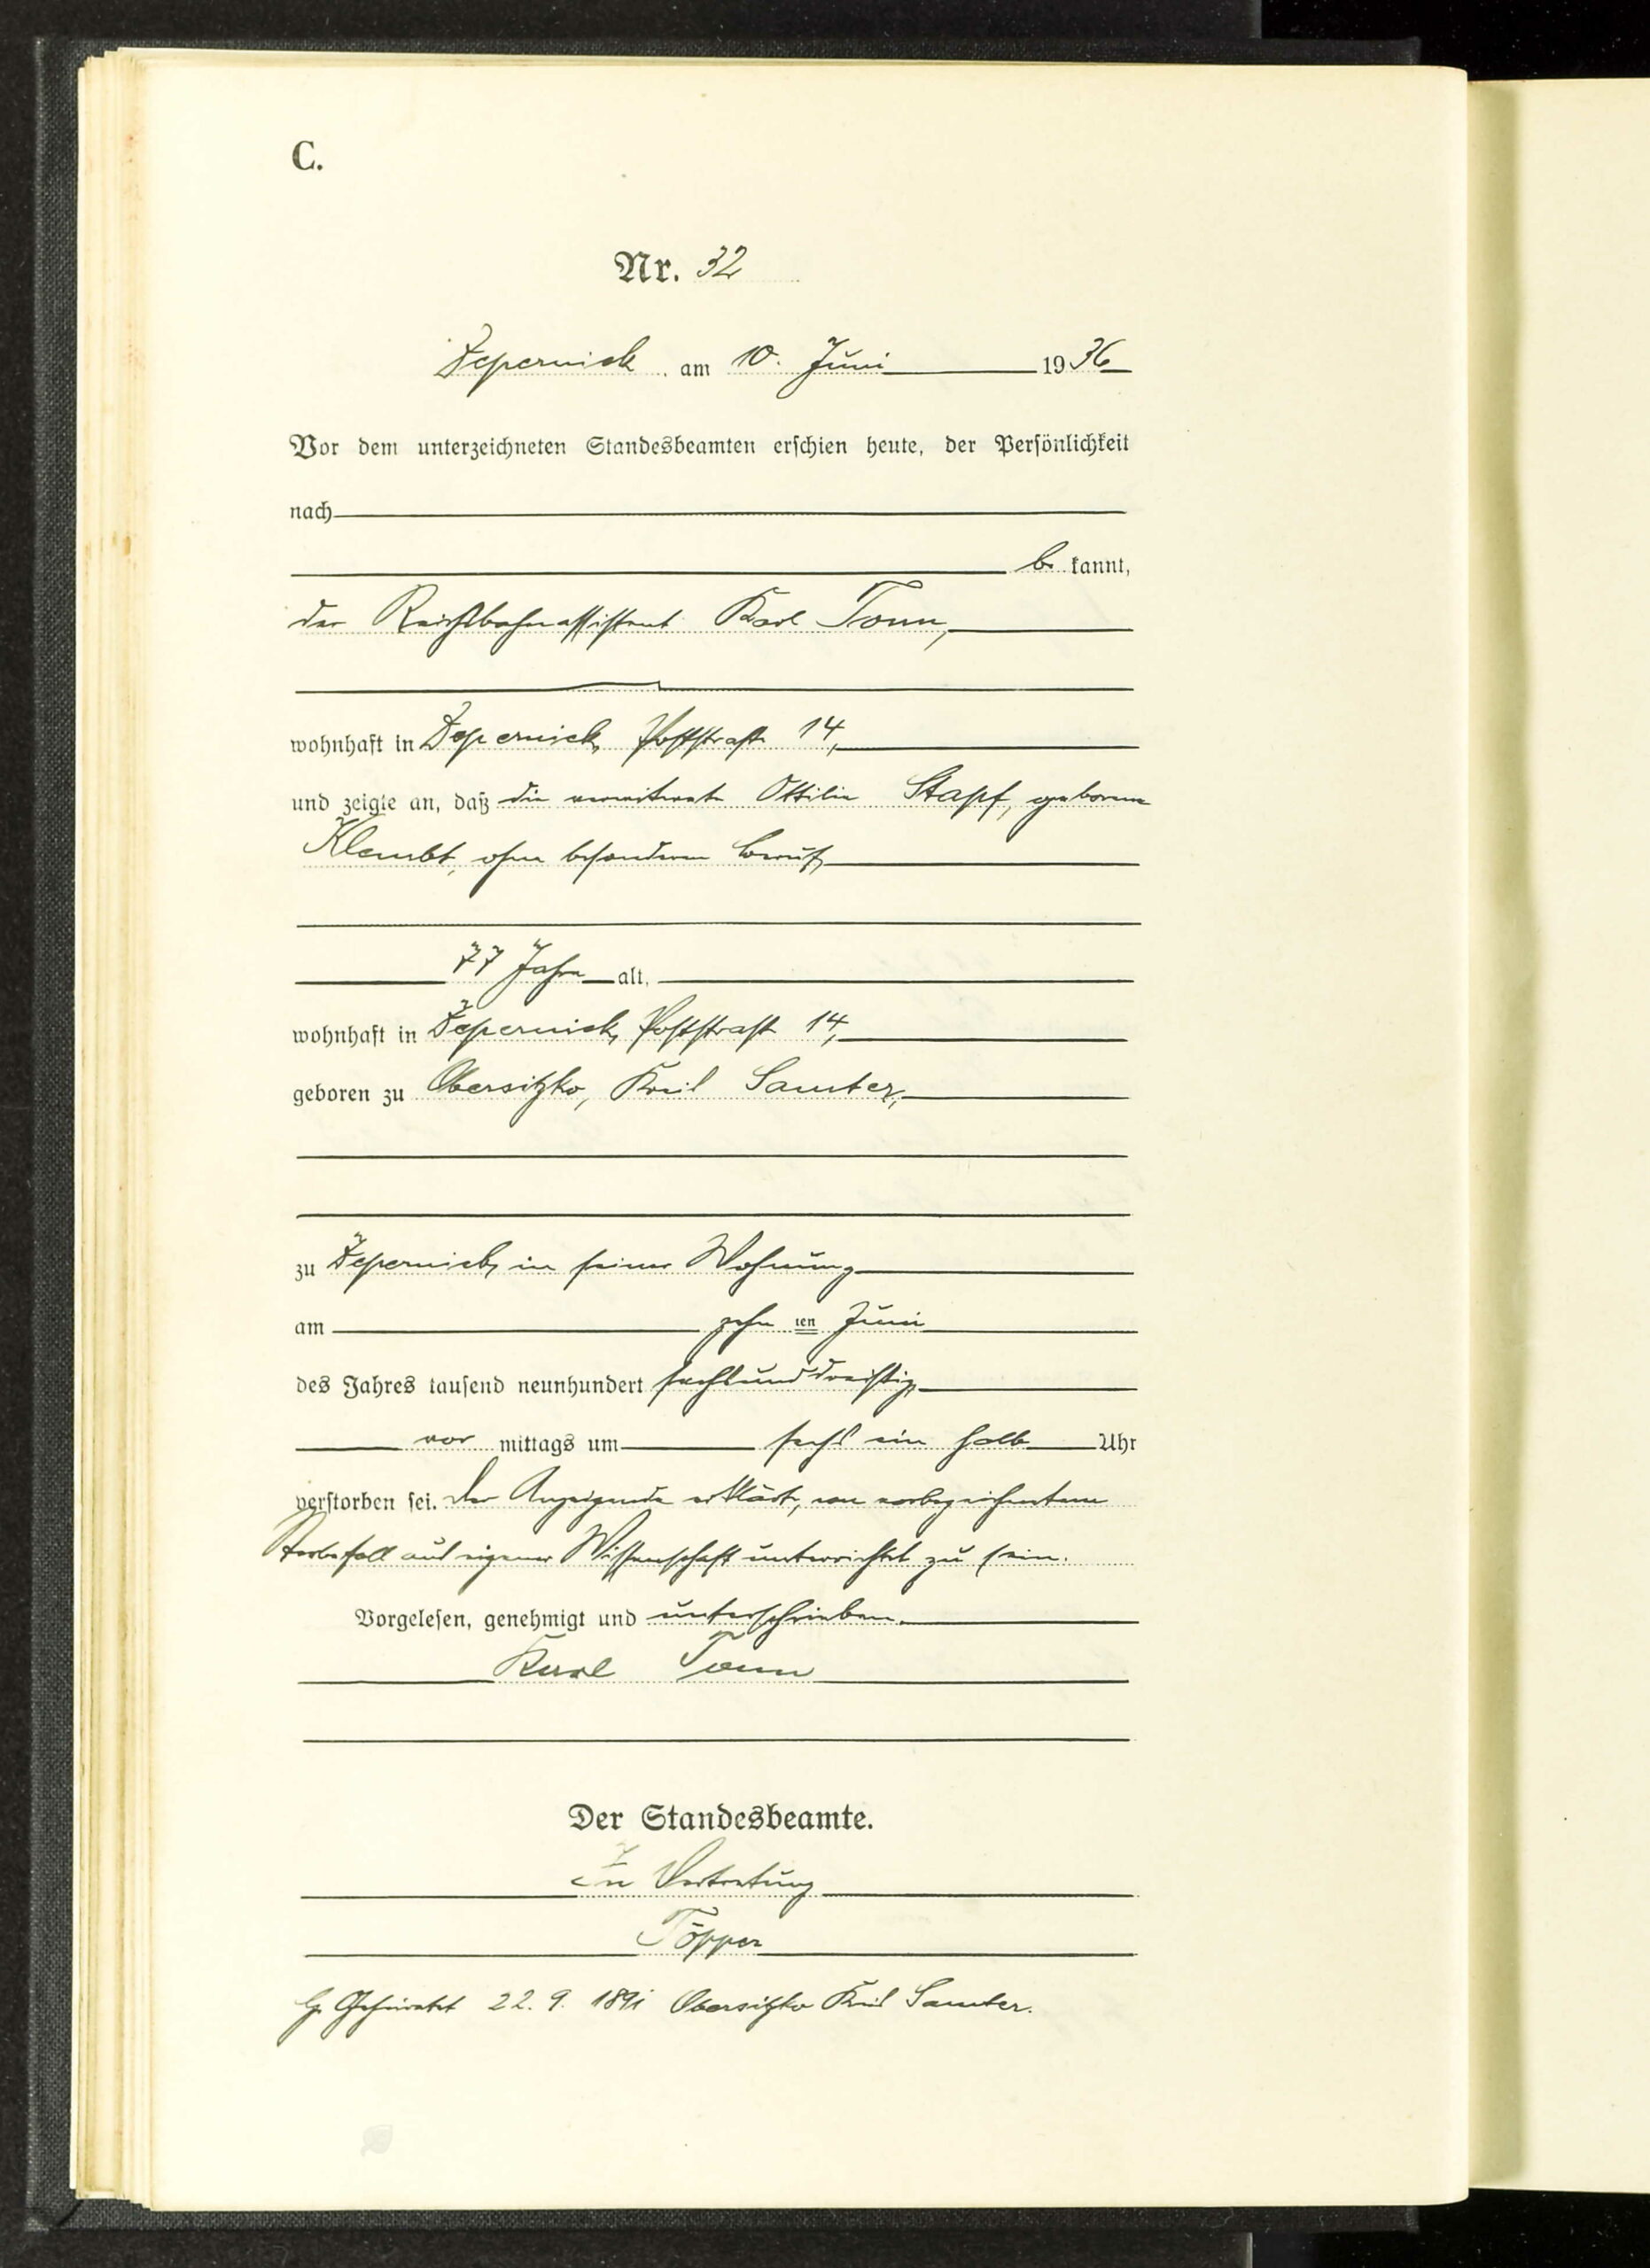 C.
Nr. 32
Zepernick am 10. Juni 1936
Vor dem unterzeichneten Standesbeamten erschien heute, der Persönlichkeit
nach
be kannt,
der Reichsbahnassistent Karl Tonn,
wohnhaft in Zepernick, Poststraße 14,
und zeigte an, daß die verwitwete Ottilie Stapf, geborene
Klembt, ohne besonderen Beruf,
77 Jahre alt,
wohnhaft in Zepernick, Poststraße 14,
geboren zu Obersitzko, Kreis Samter,
zu Zepernick, in seiner Wohnung
am zehn ten Juni
des Jahres tausend neunhundert sechsunddreißig
vor mittags um sechs ein halb Uhr
verstorben sei. Der Anzeigende erklärte, von vorbezeichnetem
Sterbefall aus eigener Wissenschaft unterrichtet zu sein.
Vorgelesen, genehmigt und unterschrieben.
Karl Tonn
Der Standesbeamte.
In Vertretung
Töpper
Geheiratet 22. 9. 1891 Obersitzko Kreis Samter.